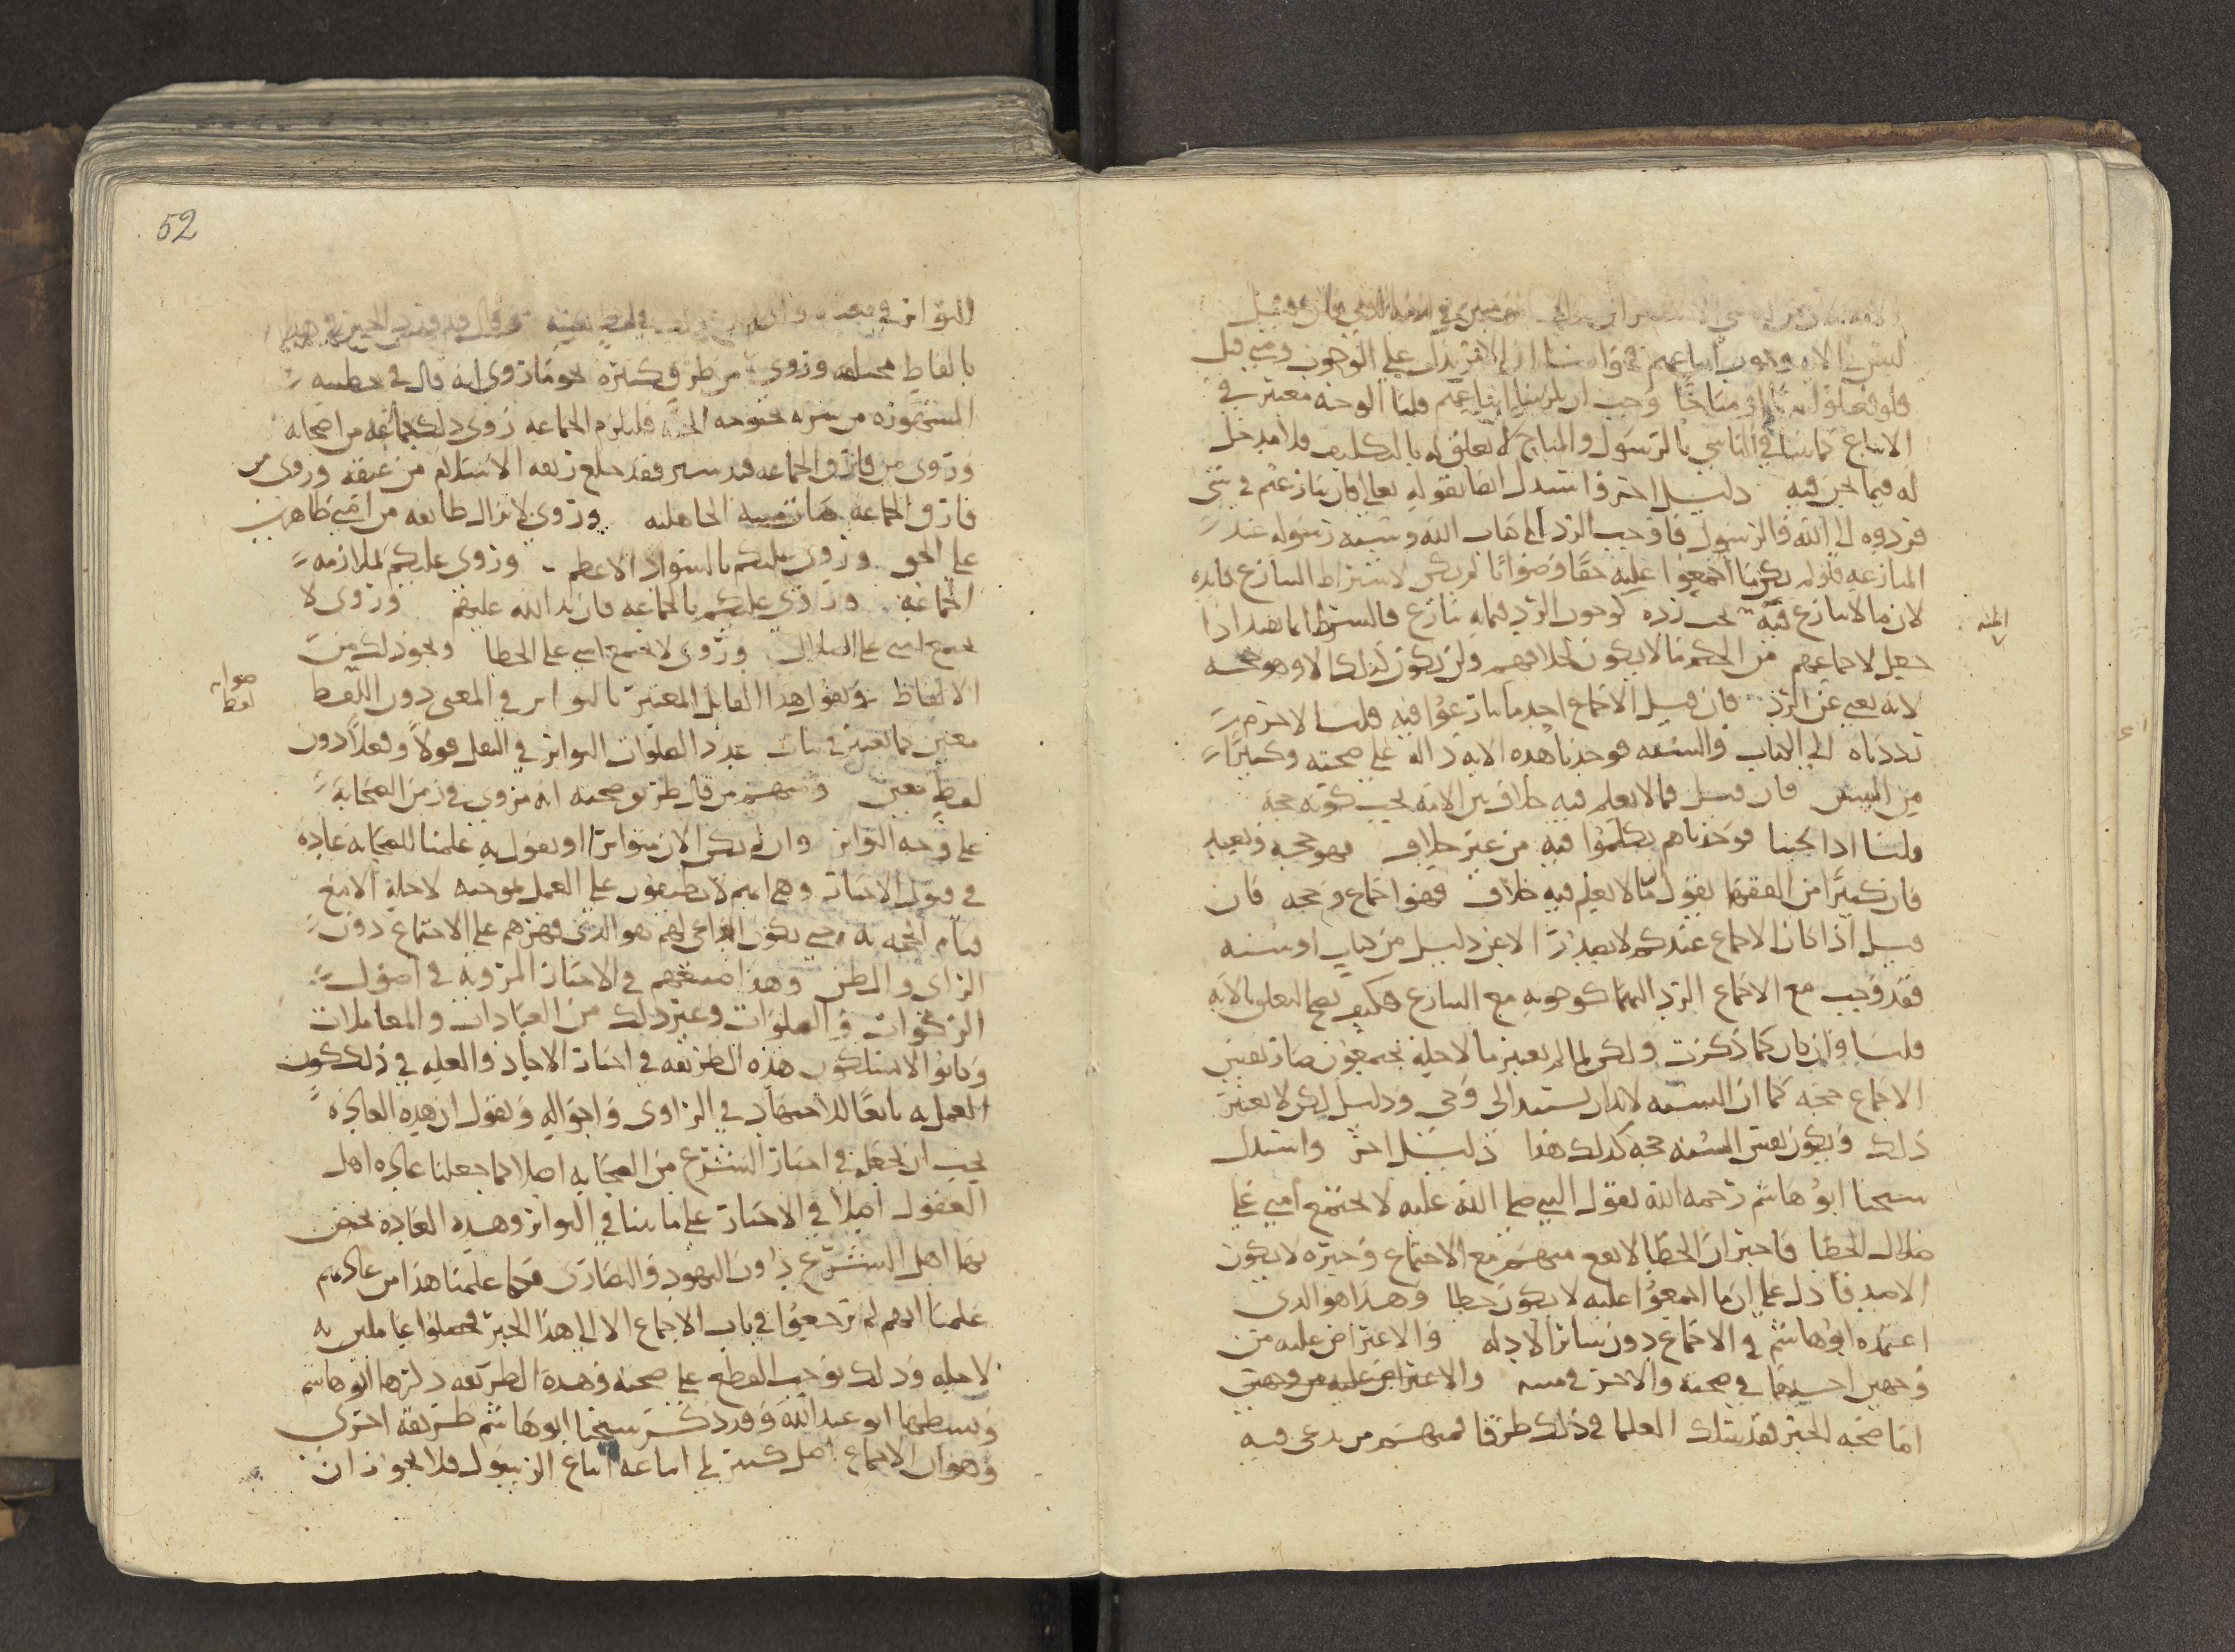 ليس الامر وجوب اتباعهم على الوجوب ومتى قيل
فلو فعلوا مباحًا وجب ان يلزمنا اتباعهم قلنا الوجه معتبر في
الاتباع كما بينا في التاسي بالرسول والمباح لا تعلق له بالتكليف فلا مدخل
له فيما نحن فيه دليل اخر واستدل ايضا بقوله تعالى فان تنازعتم في شي
فردوه الى الله والرسول فاوجب الرد الى كتاب الله وسنة رسوله عند
المنازعه فلو لم يكن ما اجمعوا عليه حقا وصوابا لم يكن لاشتراط التنازع فايده
لان ما لا تنازع فيه يجب رده كوجوب الرد فيما به تنازع فالشرط انما يفيد اذا
جعل لاجماعهم من الحكم ما لا يكون لخلافهم ولن يكون كذلك الا وهو حجه
لانه يغني عن الرد فان قيل الاجماع احد ما تنازعوا فيه قلنا لا جرم
رددناه الى الكتاب والسنه فوجدنا هذه الايه داله على صحته وكثيرا
من السنن فان قيل فما لا يعلم فيه خلاف بين الامه يجب كونه حجه
قلنا اذا بحثنا فوجدناهم تكلموا فيه من غير خلاف فهو حجه وبعيد
فان كثيرا من الفقها يقول ما لا يعلم فيه خلاف فهو اجماع وحجه فان
قيل اذا كان الاجماع عندكم لا يصدر الا عن دليل من كتاب او سنه
فقد وجب مع الاجماع الرد اليهما كوجوبه مع التنازع فكيف يصح التعلق بالايه
قلنا وان كان كما ذكرت ولكن لما لم يعتبر ما لاجله يجتمعون صار نفس
الاجماع حجه كما ان السنه لابد ان تستند الى وحي ودليل لكن لا يعتبر
ذلك ويكون نفس السنه حجه كذلك هذا دليل اخر واستدل
شيخنا ابو هاشم رحمه الله بقول النبي صلى الله عليه لا تجتمع امتي على
ضلال الخطا فاخبر ان الخطا لا يقع منهم مع الاجتماع وخبره لا يكون
الا صدقا دل على ان ما اجمعوا عليه لا يكون خطا وهذا هو الذي
اعتمده ابو هاشم في الاجماع دون سائر الادله والاعتراض عليه من
وجهين احدهما في صحته والاخر في متنه والاعتراض عليه من وجهين
اما صحه الخبر فقد سلك العلما في ذلك طرقا فمنهم من يدعى فيه
المنه
52
التواتر في معناه
بالفاظ مختلفه وروى من طرق كثيره نحو ما روي انه قال في خطبته
المشهوره من سره بحبوحه الجنه فليلزم الجماعه روى ذلك جماعه من اصحابه
وروى من فارق الجماعه قيد شبر فقد خلع ربقه الاسلام من عنقه وروى من
فارق الجماعه مات ميته الجاهليه وروى لا يزال طايفه من امتي ظاهرين
على الحق وروى عليكم بالسواد الاعظم وروى عليكم بملازمه
الجماعه وروى عليكم بالجماعه فان يد الله عليهم وروى لا
تجتمع امتي على الضلال وروى لا تجتمع امتي على الخطا ونحو ذلك من
الالفاظ ويقول هذا القايل المعتبر بالتواتر في المعنى دون اللفظ
صوابه لفظ
معين كما نعتبر في بيان عدد الصلوات التواتر في النقل قولا وفعلا دون
لفظ معين ومنهم من قال طريق صحته انه مروي في زمن الصحابه
على وجه التواتر وان لم يكن الان متواترا او يقول به علمنا للصحابه عاده
في قبول الاخبار وهي انهم لا يطبقون على العمل بموجبه لاجله الا مع
قيام الحجه به حتى يكون الداعي لهم هو الذي قهرهم على الاجتماع دون
الراي والظن وهذا صنيعهم في الاخبار المرويه في اصول
الزكوات والصلوات وغير ذلك من العبادات والمعاملات
وكانوا لا يسلكون هذه الطريقه في اخبار الاحاد والعله في ذلك كون
العمل به تابعا للاجتهاد في الراوي واحواله ونقول ان هذه العاده
يجب ان تجعل في اخبار الشرع من الصحابه اصلا كما جعلنا عاده اهل
العقول اصلا في الاخبار على ما بينا في التواتر وهذه العاده يختص
بها اهل الشرع دون اليهود والنصارى فكما علمنا هذا من عادتهم
علمنا انهم لم يرجعوا في باب الاجماع الا الى هذا الخبر فجعلوا عاملين به
لاجله وذلك يوجب القطع على صحته وهذه الطريقه ذكرها ابو هاشم
وبسطها ابو عبد الله وقد ذكر شيخنا ابو هاشم طريقه اخرى
وهو ان الاجماع اصل كبير في اتباعه اتباع الرسول فلا يجوز ان